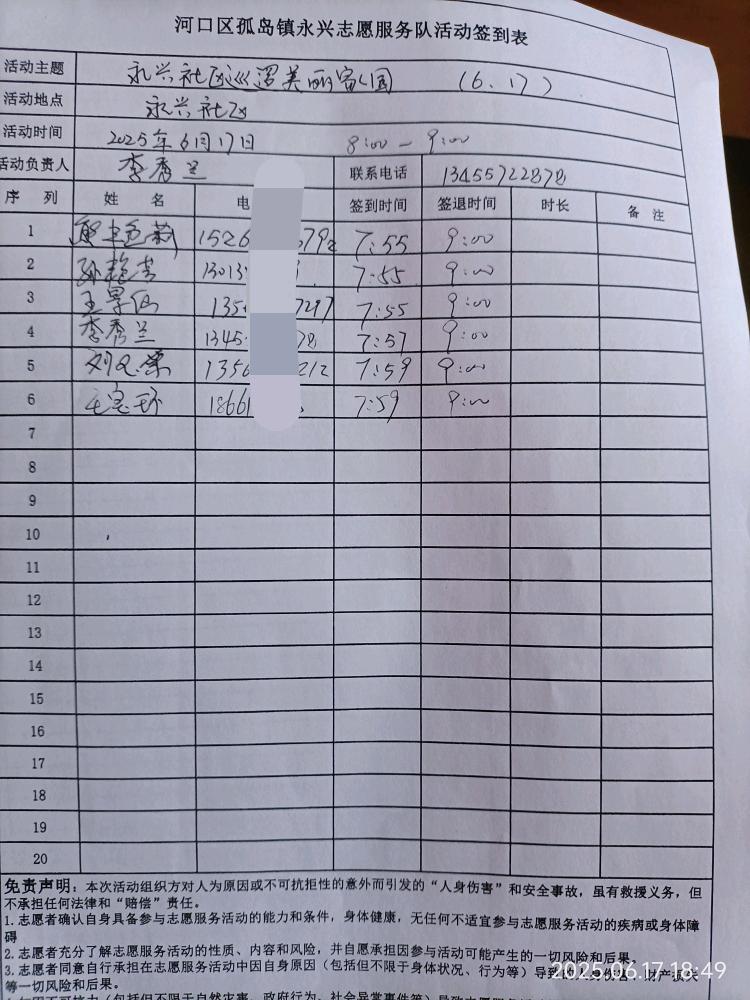 河口区孤岛镇永兴志愿服务队活动签到表
活动主题 永兴社区巡逻美丽家园 (6.17)
活动地点 永兴社区
活动时间 2025年6月17日 8:00-9:00
活动负责人 李秀兰 联系电话 13455722878
序 列 姓 名 电 签到时间 签退时间 时长 备 注
1 1526 7:55 9:00
2 孙艳 1301 7:55 9:00
3 王 135 7297 7:55 9:00
4 李秀兰 1345 78 7:57 9:00
5 刘 1356 212 7:59 9:00
6 王宝环 1866 7:59 9:00
7
8
9
10
11
12
13
14
15
16
17
18
19
20
免责声明：本次活动组织方对人为原因或不可抗拒性的意外而引发的“人身伤害”和安全事故，虽有救援义务，但
不承担任何法律和“赔偿”责任。
1.志愿者确认自身具备参与志愿服务活动的能力和条件，身体健康，无任何不适宜参与志愿服务活动的疾病或身体障
碍
2.志愿者充分了解志愿服务活动的性质、内容和风险，并自愿承担因参与活动可能产生的一切风险和后果。
3.志愿者同意自行承担在志愿服务活动中因自身原因（包括但不限于身体状况、行为等）导致的人身伤害、财产损失
等一切风险和后果。
不可抗力（包括但不限于自然灾害、政府行为、社会异常事件等）导致志愿服务
2025.06.17 18:49